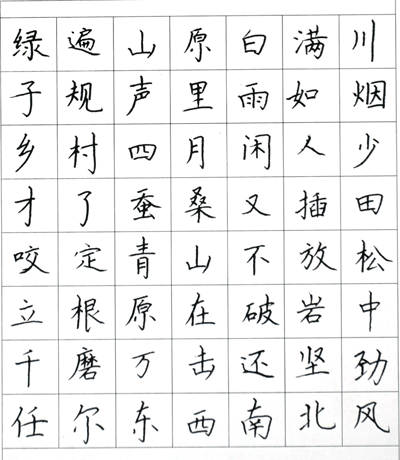 绿遍山原白满川
子规声里雨如烟
乡村四月闲人少
才了蚕桑又插田
咬定青山不放松
立根原在破岩中
千磨万击还坚劲
任尔东西南北风